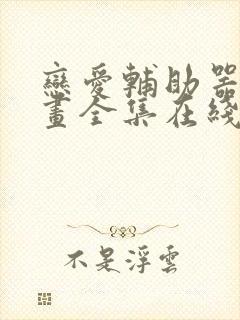 戀愛輔助器
畫全集在綫
不是浮雲